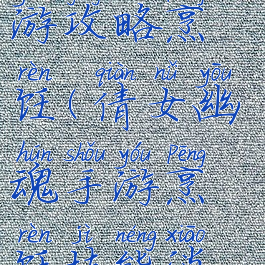 游攻略烹
rèn qiàn nǚ yōu
饪(倩女幽
hún shǒu yóu Pēng
魂手游烹
rèn jì néng xiāo